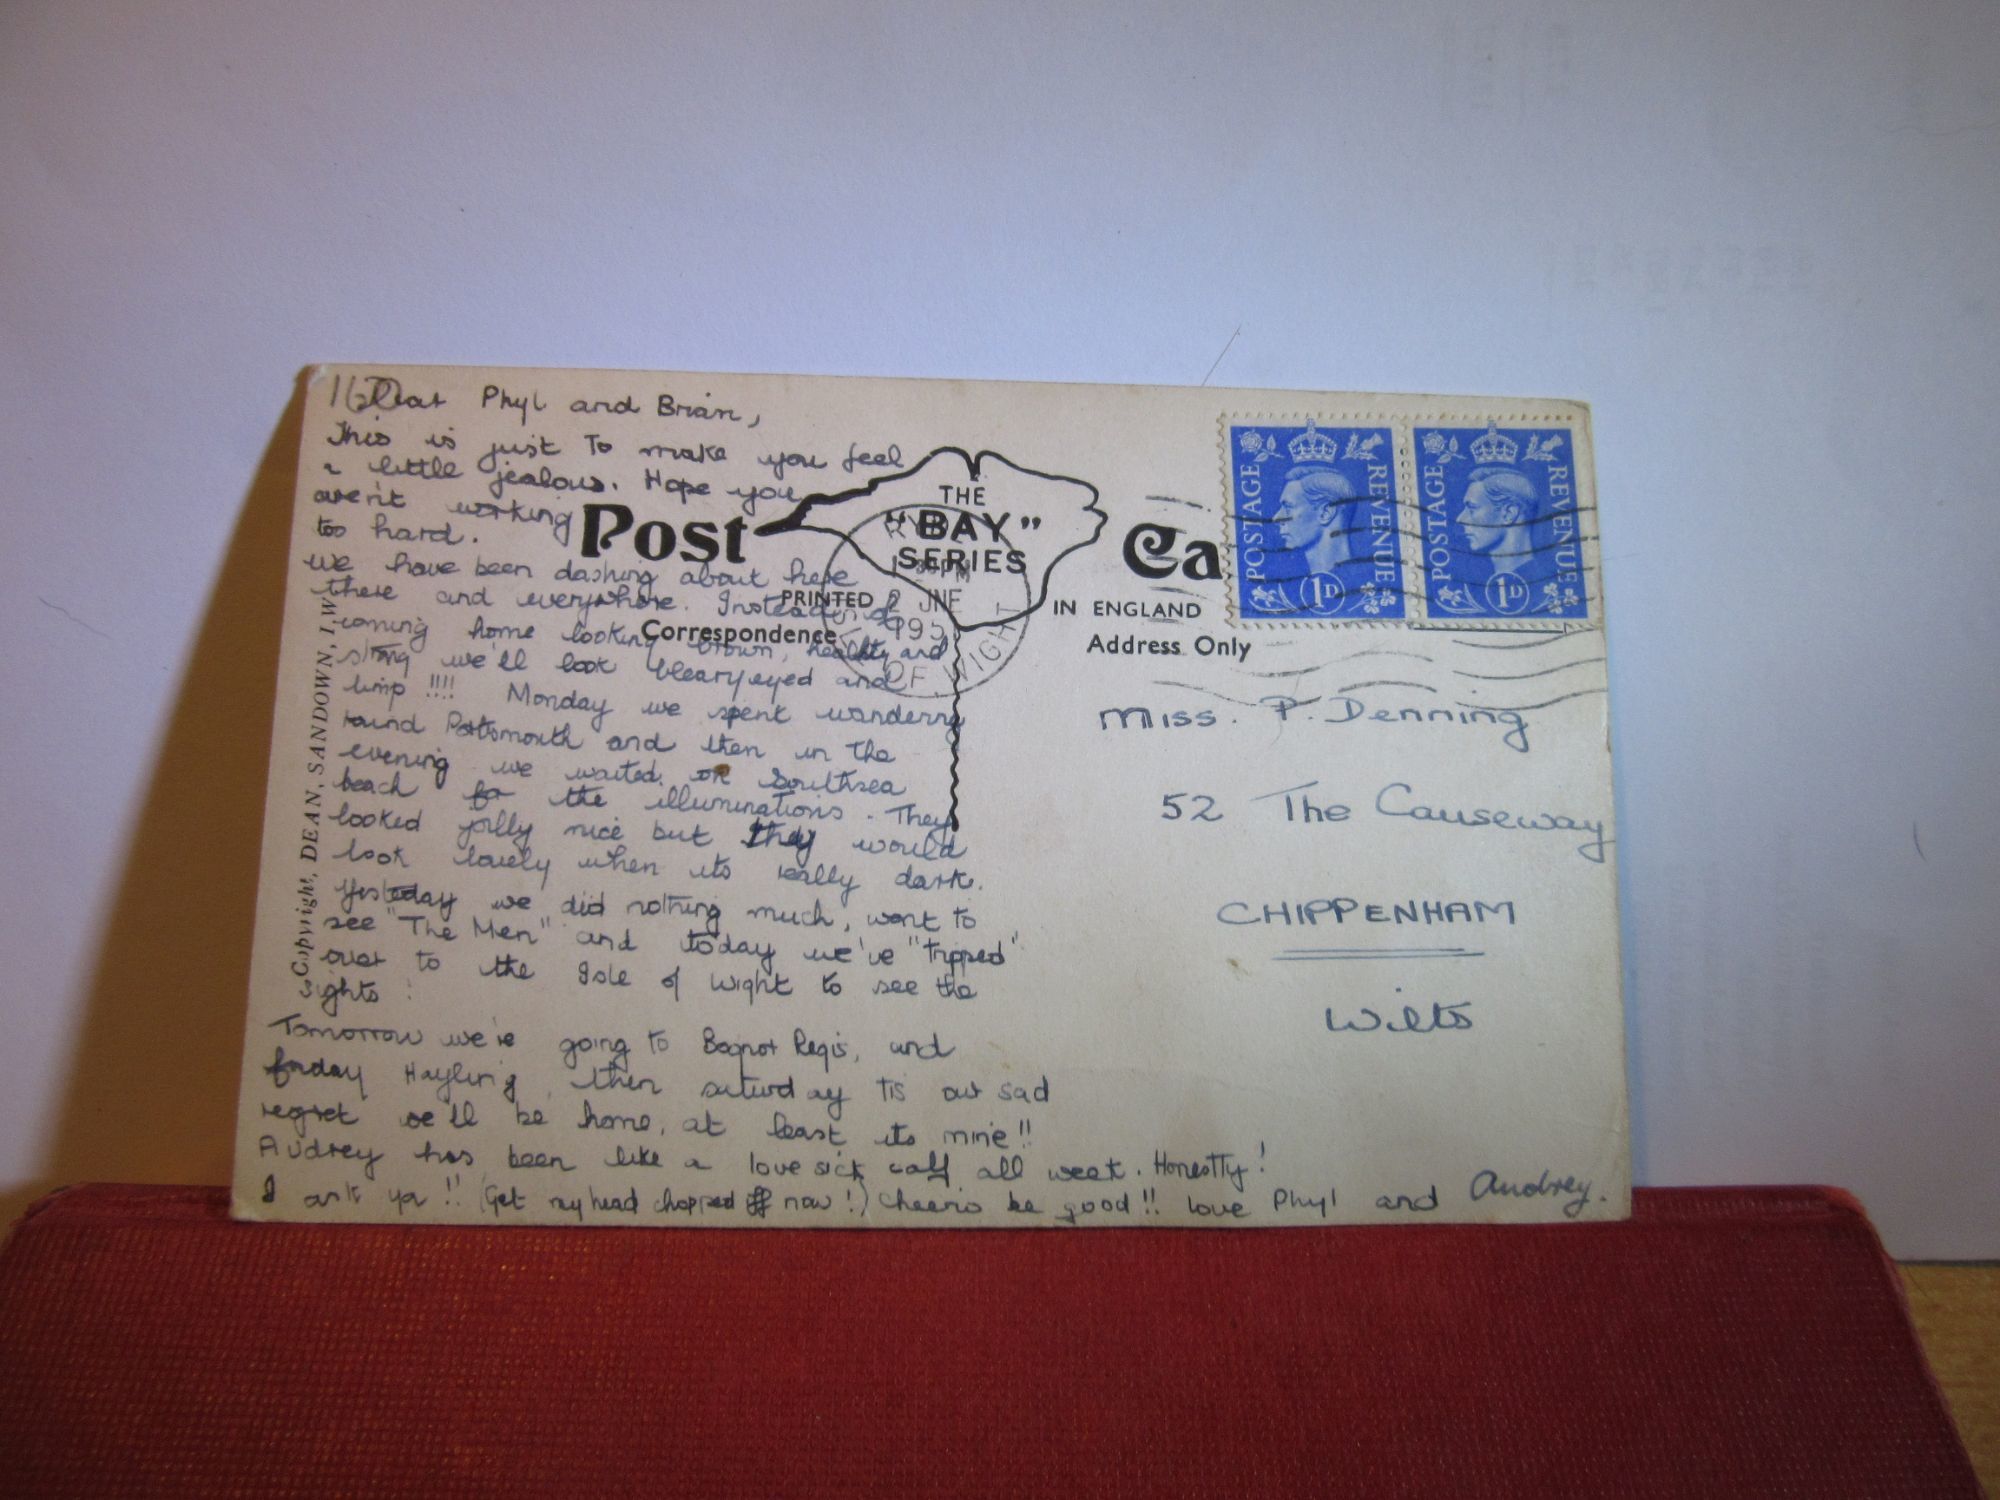 Dear Phyl and Brian,
This is just To make you feel
a little jealous. Hope you
aren't working
too hard.
we have been dashing about here
there and everywhere. Instead of
coming home looking brown, healthy and
strong we'll look blearyeyed and
limp !!!! Monday we spent wandering
round Portsmouth and then in the
evening we waited on Southsea
beach for the illuminations. They
looked jolly nice but they would
look lovely when its really dark.
Yesterday we did nothing much, went to
see "The Men" and today we've "tripped"
over to the Isle of Wight to see the
sights!
Tomorrow we're going to Bognor Regis, and
friday Hayling, then saturday tis our sad
regret we'll be home, at least its mine!!
Audrey has been like a love sick calf all week. Honestly!
I ask ya!! (Get my head chopped off now!) Cheerio be good!! love Phyl and Audrey.
Post Ca
THE
"BAY"
SERIES
PRINTED IN ENGLAND
Correspondence
Address Only
Copyright, DEAN, SANDOWN, I.W.
2 JNE
195
OF WIGHT
POSTAGE REVENUE
1D
POSTAGE REVENUE
1D
Miss. P. Denning
52 The Causeway
CHIPPENHAM
Wilts